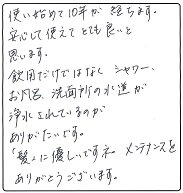 使い始めて10年が経ちます。
安心して使えてとても良いと
思います。
飲用だけではなく シャワー、
お风呂、洗面所の水道が
浄水されているのが
ありがたいです。
「髪」に優しいですネ。メンテナンスを
ありがとうございます。